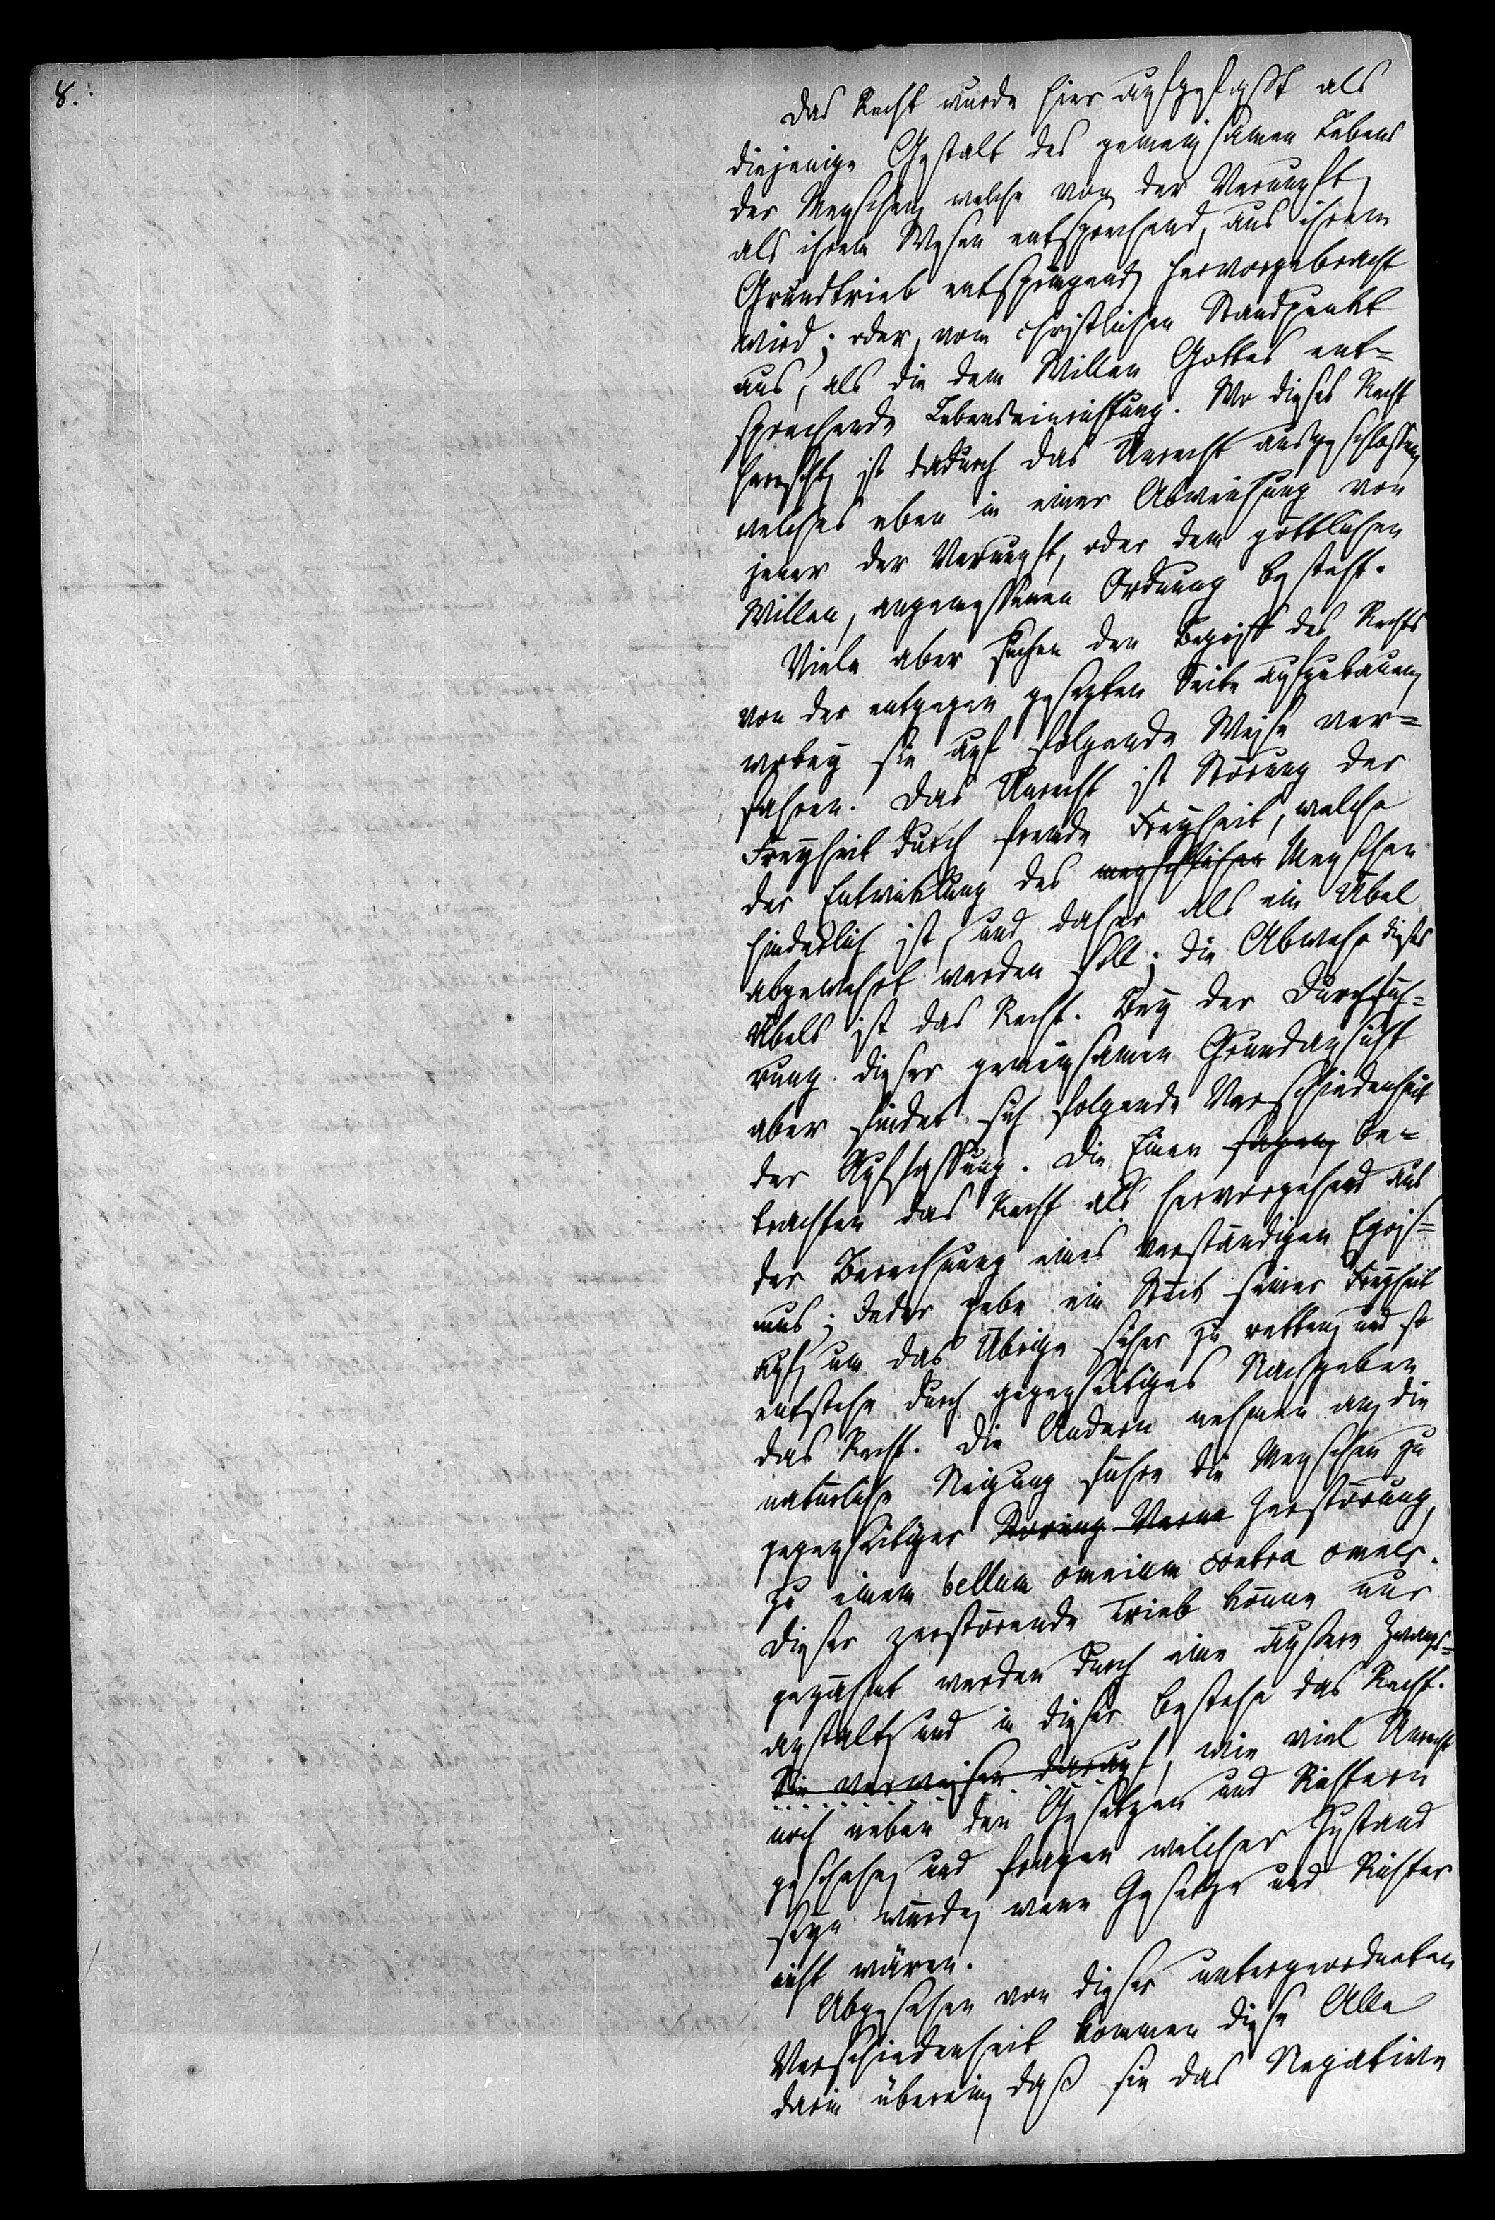 8.
Das Recht wurde hier aufgefaßt als
diejenige Gestalt des gemeinsamen Lebens
der Menschen, welche von der Vernunft,
als ihrem Wesen entsprechend, aus ihrem
Grundtrieb entspringend, hervorgebracht
wird; oder, vom christlichen Standpunkt
aus, als die dem Willen Gottes ent=
sprechende Lebenseinrichtung. Wo dieses Recht
herrscht, ist dadurch das Unrecht ausgeschlossen,
welches eben in einer Abweichung von
jener der Vernunft, oder dem göttlichen
Willen, angemessenen Ordnung besteht.
Viele aber suchen den Begriff des Rechts
von der entgegen gesetzten Seite aufzubauen,
wobey sie auf folgende Weise ver=
fahren. Das Unrecht ist Störung der
Freyheit durch fremde Freyheit, welche
der Entwicklung des menschlichen Menschen
hinderlich ist, und daher als ein Übel
abgewehrt werden soll; die Abwehr dieses
Übels ist das Recht. Bey der Durchfüh=
rung dieser gemeinsamen Grundansicht
aber findet sich folgende Verschiedenheit
der Auffassung. Die Einen sagen, be=
trachten das Recht als hervorgehend aus
der Berechnung eines verständigen Egois=
mus; Jeder gebe ein Stück seiner Freyheit
auf, um das Übrige sicher zu retten, und so
entstehe durch gegenseitiges Nachgeben
das Recht. Die Andern nehmen an, die
natürliche Neigung führe die Menschen zu
gegenseitiger Störung Zerstörung,
zu einem bellum omnium contra omnes.
Dieser zerstörende Trieb könne nur
gezähmt werden durch eine äußere Zwangs=
anstalt, und in dieser bestehe das Recht.
Sie verweisen darauf, wie viel Unrecht
noch neben den Gesetzen und Richtern
geschehe, und fragen welcher Zustand
seyn würde, wenn Gesetze und Richter
nicht wären.
Abgesehen von dieser untergeordneten
Verschiedenheit kommen diese Alle
darin überein, daß sie das Negative